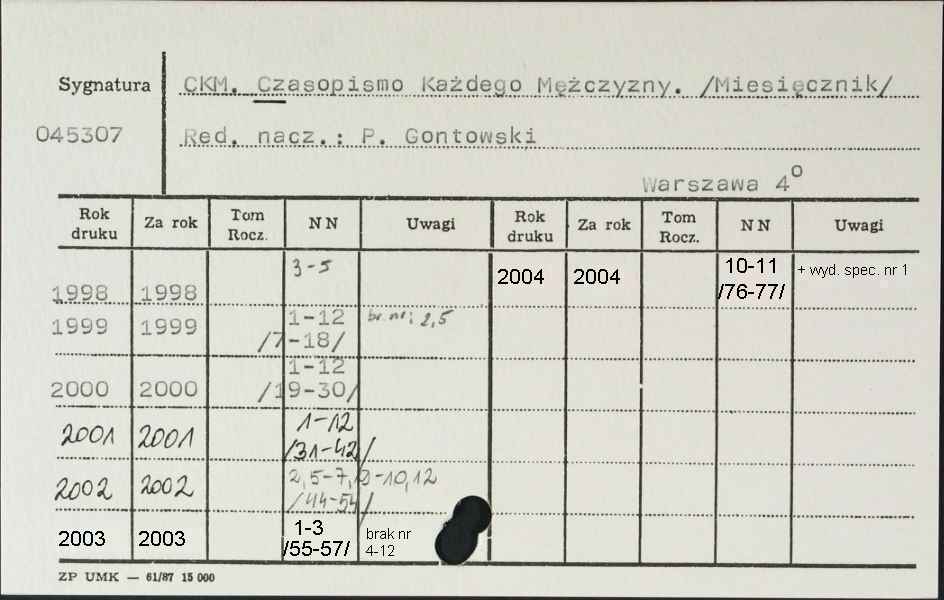 Sygnatura CKM. Czasopismo Każdego Mężczyzny. /Miesięcznik/
045307 Red. nacz.: P. Gontowski
Warszawa 4º
Rok druku Za rok Tom Rocz. NN Uwagi Rok druku Za rok Tom Rocz. NN Uwagi
1998 1998 3-5
1999 1999 1-12 /7-18/ br. nr: 2,5
2000 2000 1-12 /19-30/
2001 2001 1-12 /31-42/
2002 2002 2,5-7, -10,12 /44-54/
2003 2003 1-3 /55-57/ brak nr 4-12
2004 2004 10-11 /76-77/ + wyd. spec. nr 1
ZP UMK — 61/87 15 000